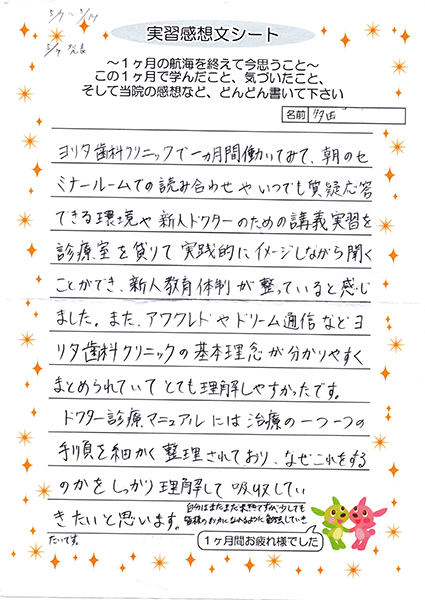 5/7 ~ 5/14
実習感想文シート
~1ヶ月の航海を終えて今思うこと~
この1ヶ月で学んだこと、気づいたこと、
そして当院の感想など、どんどん書いて下さい
名前
ヨリタ歯科クリニックで一ヵ月間働いてみて、朝のセ
ミナールームでの読み合わせやいつでも質疑応答
できる環境や新人ドクターのための講義実習を
診療室を貸りて実践的にイメージしながら聞く
ことができ、新人教育体制が整っていると感じ
ました。また、アワクレドやドリーム通信などヨ
リタ歯科クリニックの基本理念が分かりやすく
まとめられていてとても理解しやすかったです。
ドクター診療マニュアルには治療の一つ一つの
手順を細かく整理されており、なぜこれをする
のかをしっかり理解して吸収してい
きたいと思います。自分はまだまだ未熟ですが、少しでも
皆様のお力になれるように勉強していき
たいです。
1ヶ月間お疲れ様でした